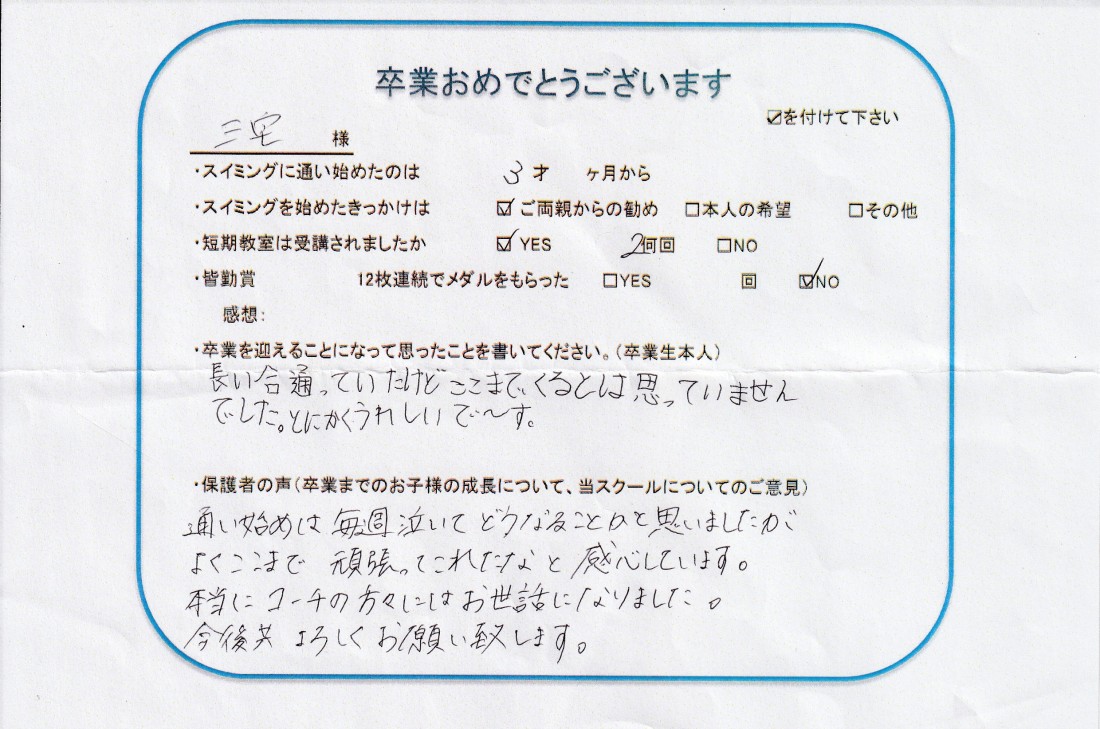 卒業おめでとうございます
☑を付けて下さい
三宅 様
・スイミングに通い始めたのは 3才 ヶ月から
・スイミングを始めたきっかけは ☑ご両親からの勧め □本人の希望 □その他
・短期教室は受講されましたか ☑YES 2何回 □NO
・皆勤賞 12枚連続でメダルをもらった □YES 回 ☑NO
感想:
・卒業を迎えることになって思ったことを書いてください。(卒業生本人)
長い合通っていたけどここまでくるとは思っていません
でした。とにかくうれしいで〜す。
・保護者の声(卒業までのお子様の成長について、当スクールについてのご意見)
通い始めは毎週泣いてどうなることかと思いましたが
よくここまで頑張ってこれたなと感心しています。
本当にコーチの方々にはお世話になりました。
今後共よろしくお願い致します。